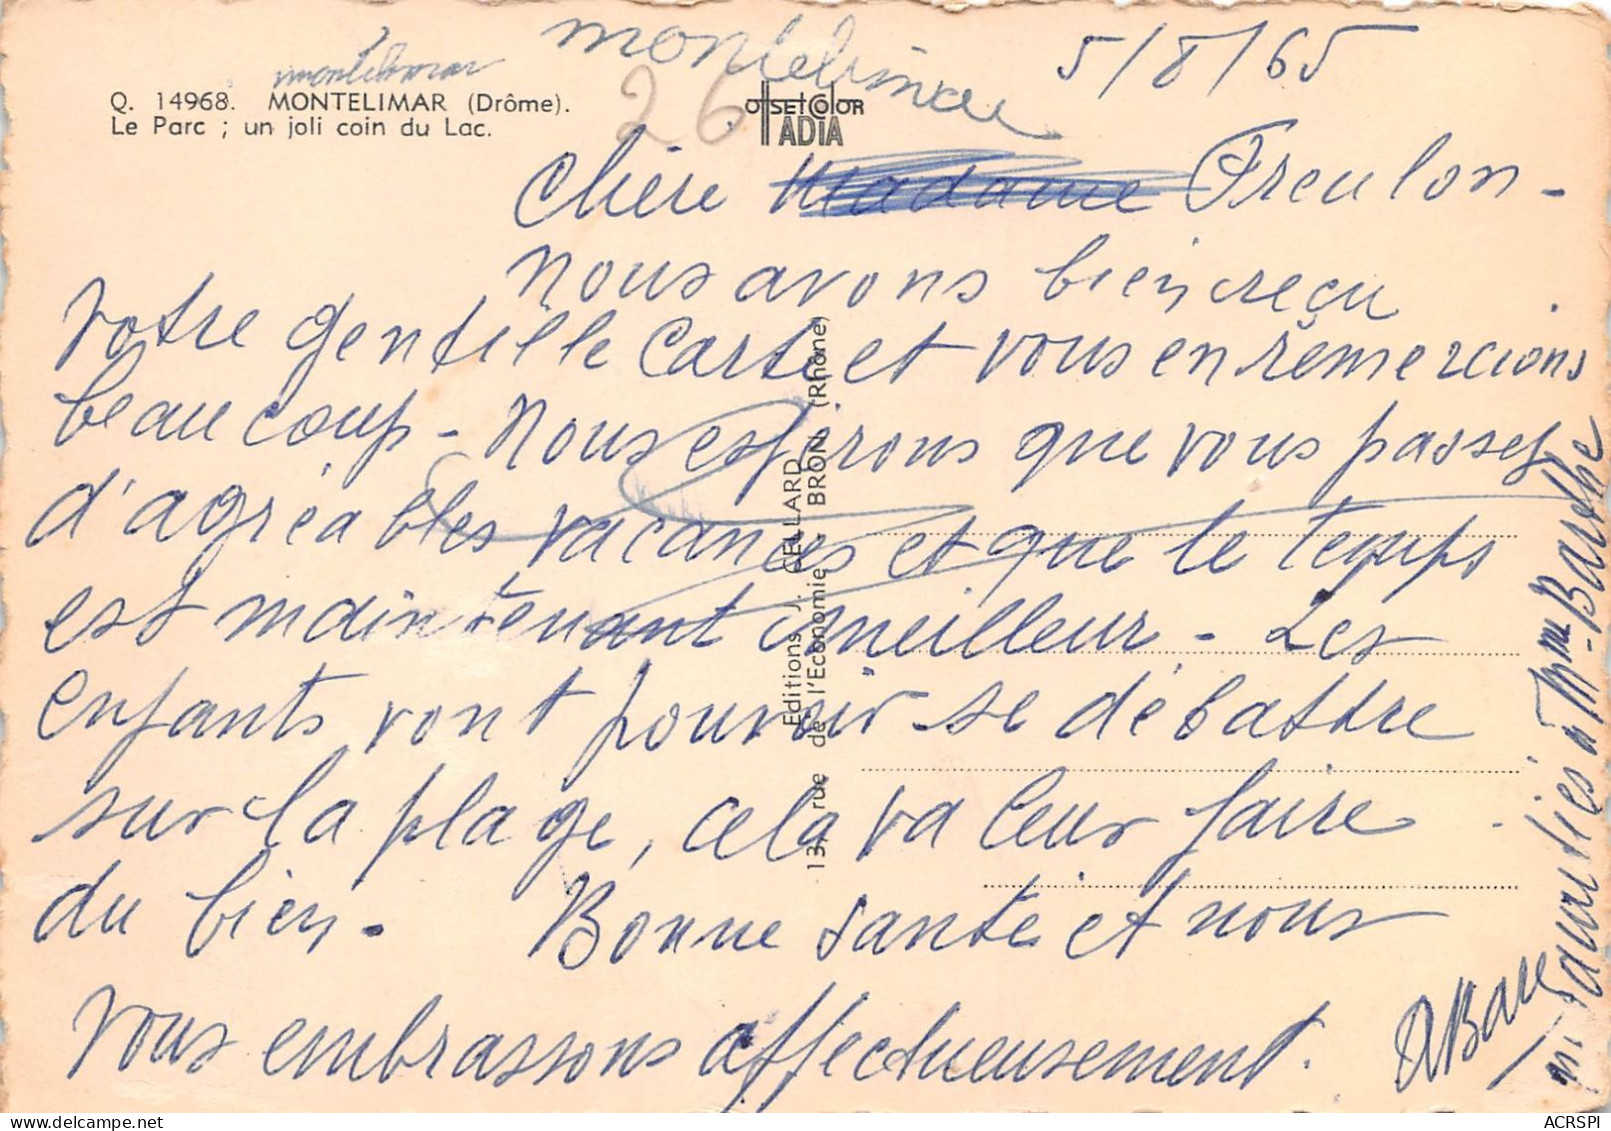 montelimar 5/8/65
montelimar
26
Q. 14968. MONTELIMAR (Drôme).
Le Parc ; un joli coin du Lac.
OffSET COlOR
IADIA
Chère Madame Freulon -
nous avons bien reçu
votre gentille Carte et vous en remercions
beaucoup - Nous espérons que vous passez
d'agréables vacances et que le temps
est maintenant meilleur - Les
enfants vont pouvoir se débattre
sur la plage, cela va leur faire
du bien. Bonne santé et nous
vous embrassons affectueusement.
Editions J. CELLARD
13, rue de l'Economie - BRON (Rhône)
amitiés à Mme Barthe
ACRSPI